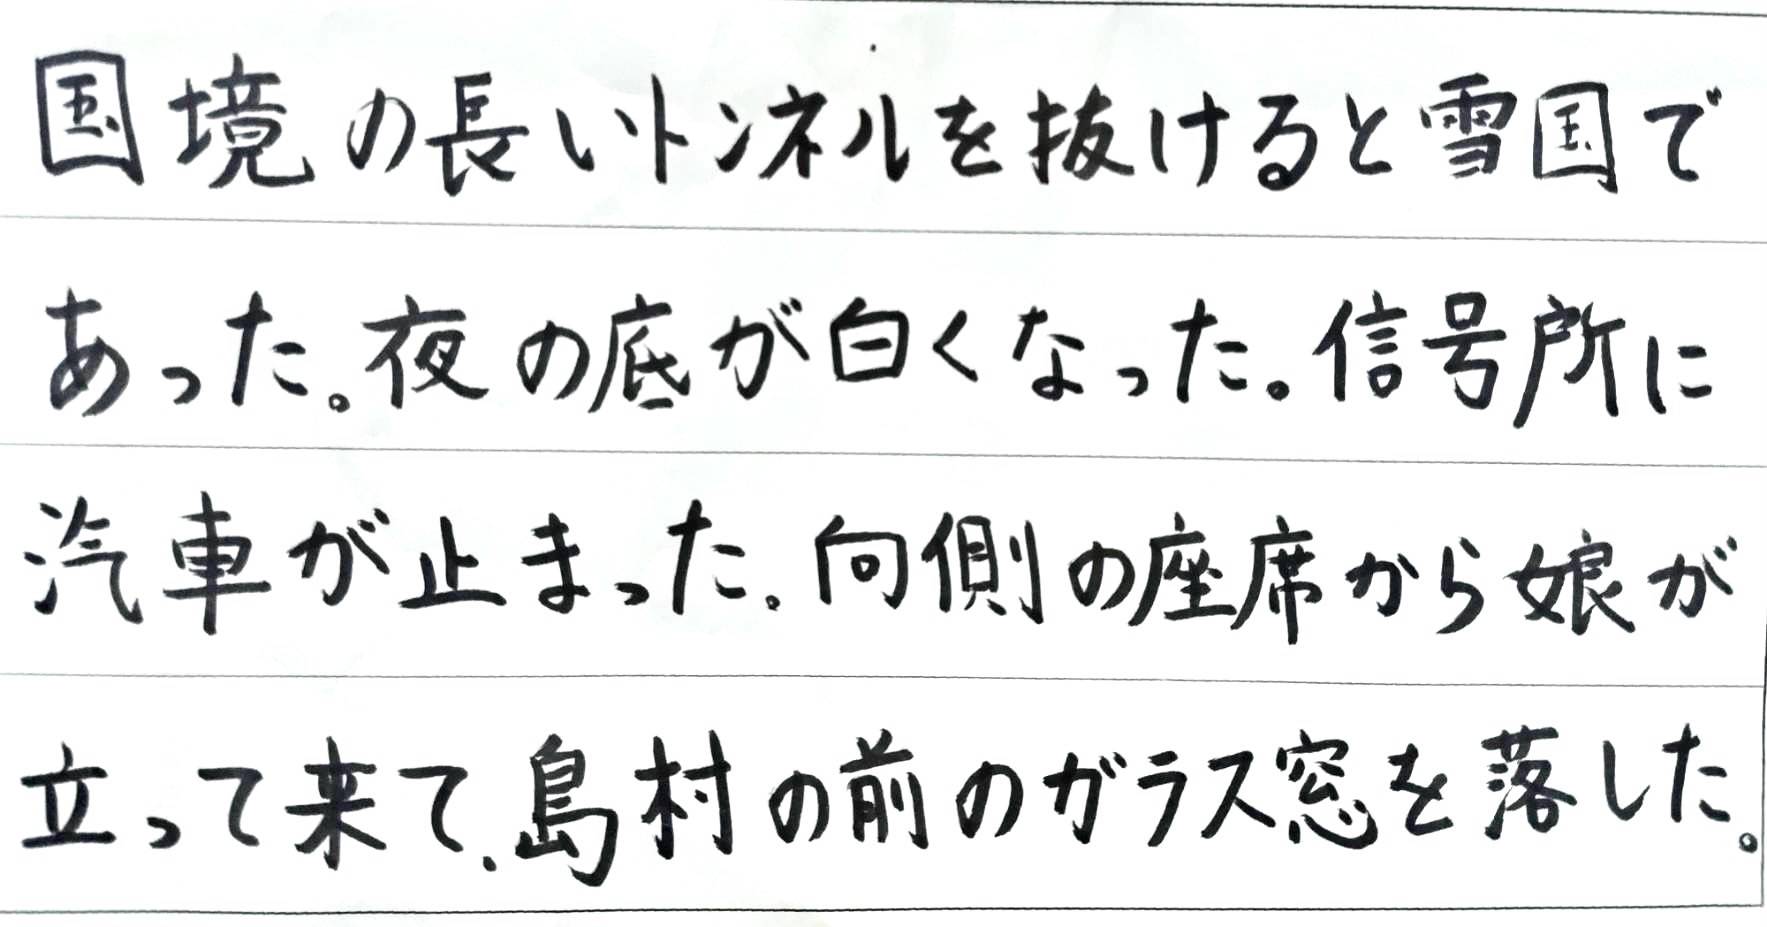 国境の長いトンネルを抜けると雪国で
あった。夜の底が白くなった。信号所に
汽車が止まった。向側の座席から娘が
立って来て、島村の前のガラス窓を落した。